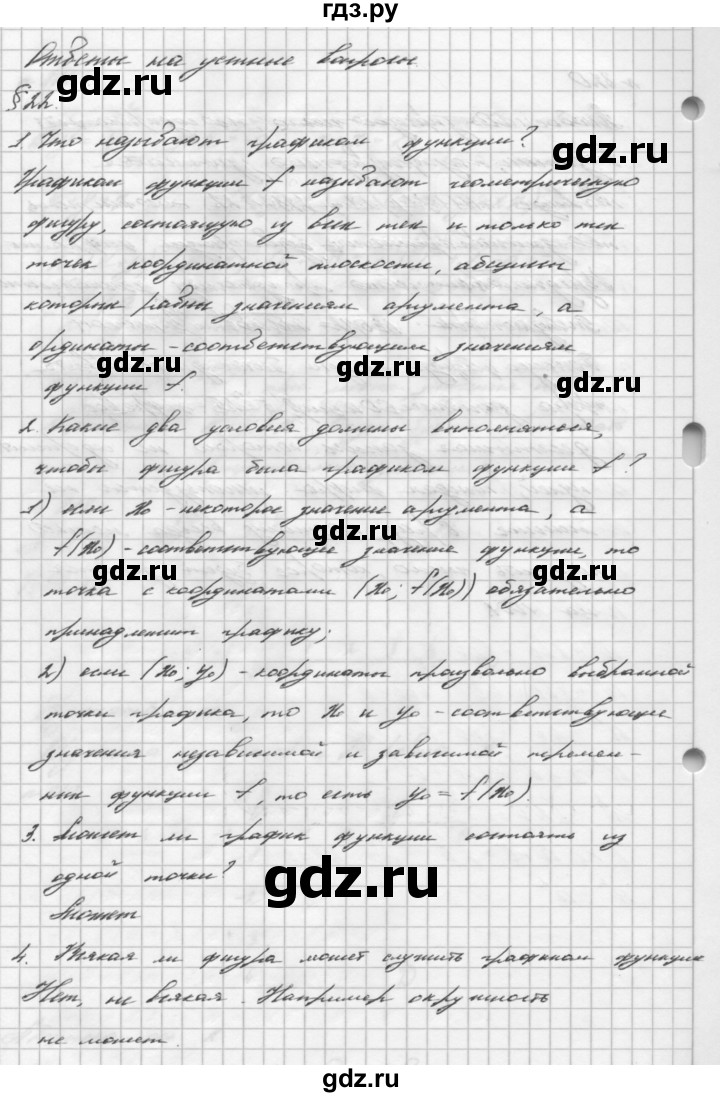 гдз.ру
Ответы на устные вопросы
§22.
1. Что называют графиком функции?
Графиком функции f называют геометрическую
фигуру, состоящую из всех тех и только тех
точек координатной плоскости, абсциссы
которых равны значениям аргумента, а
ординаты - соответствующим значениям
функции f.
2. Какие два условия должны выполняться,
чтобы фигура была графиком функции f?
1) если x₀ - некоторое значение аргумента, а
f(x₀) - соответствующее значение функции, то
точка с координатами (x₀; f(x₀)) обязательно
принадлежит графику;
2) если (x₀; y₀) - координаты произвольно выбранной
точки графика, то x₀ и y₀ - соответствующие
значения независимой и зависимой перемен-
ных функции f, то есть y₀ = f(x₀).
3. Может ли график функции состоять из
одной точки?
Может
4. Всякая ли фигура может служить графиком функции
Нет, не всякая. Например окружность
не может.
gdz.ru
gdz.ru
gdz.ru
gdz.ru
gdz.ru
gdz.ru
gdz.ru
gdz.ru
gdz.ru
gdz.ru
gdz.ru
gdz.ru
gdz.ru